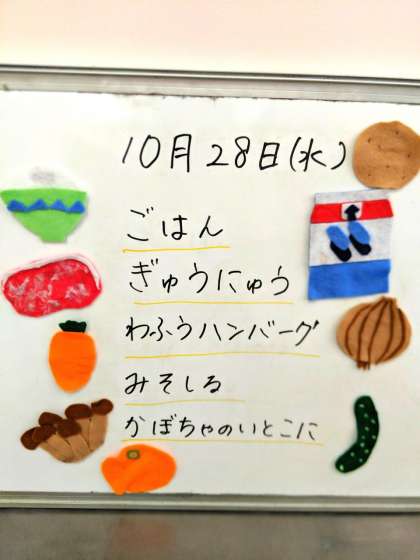 10月28日(水)
ごはん
ぎゅうにゅう
わふうハンバーグ
みそしる
かぼちゃのいとこに